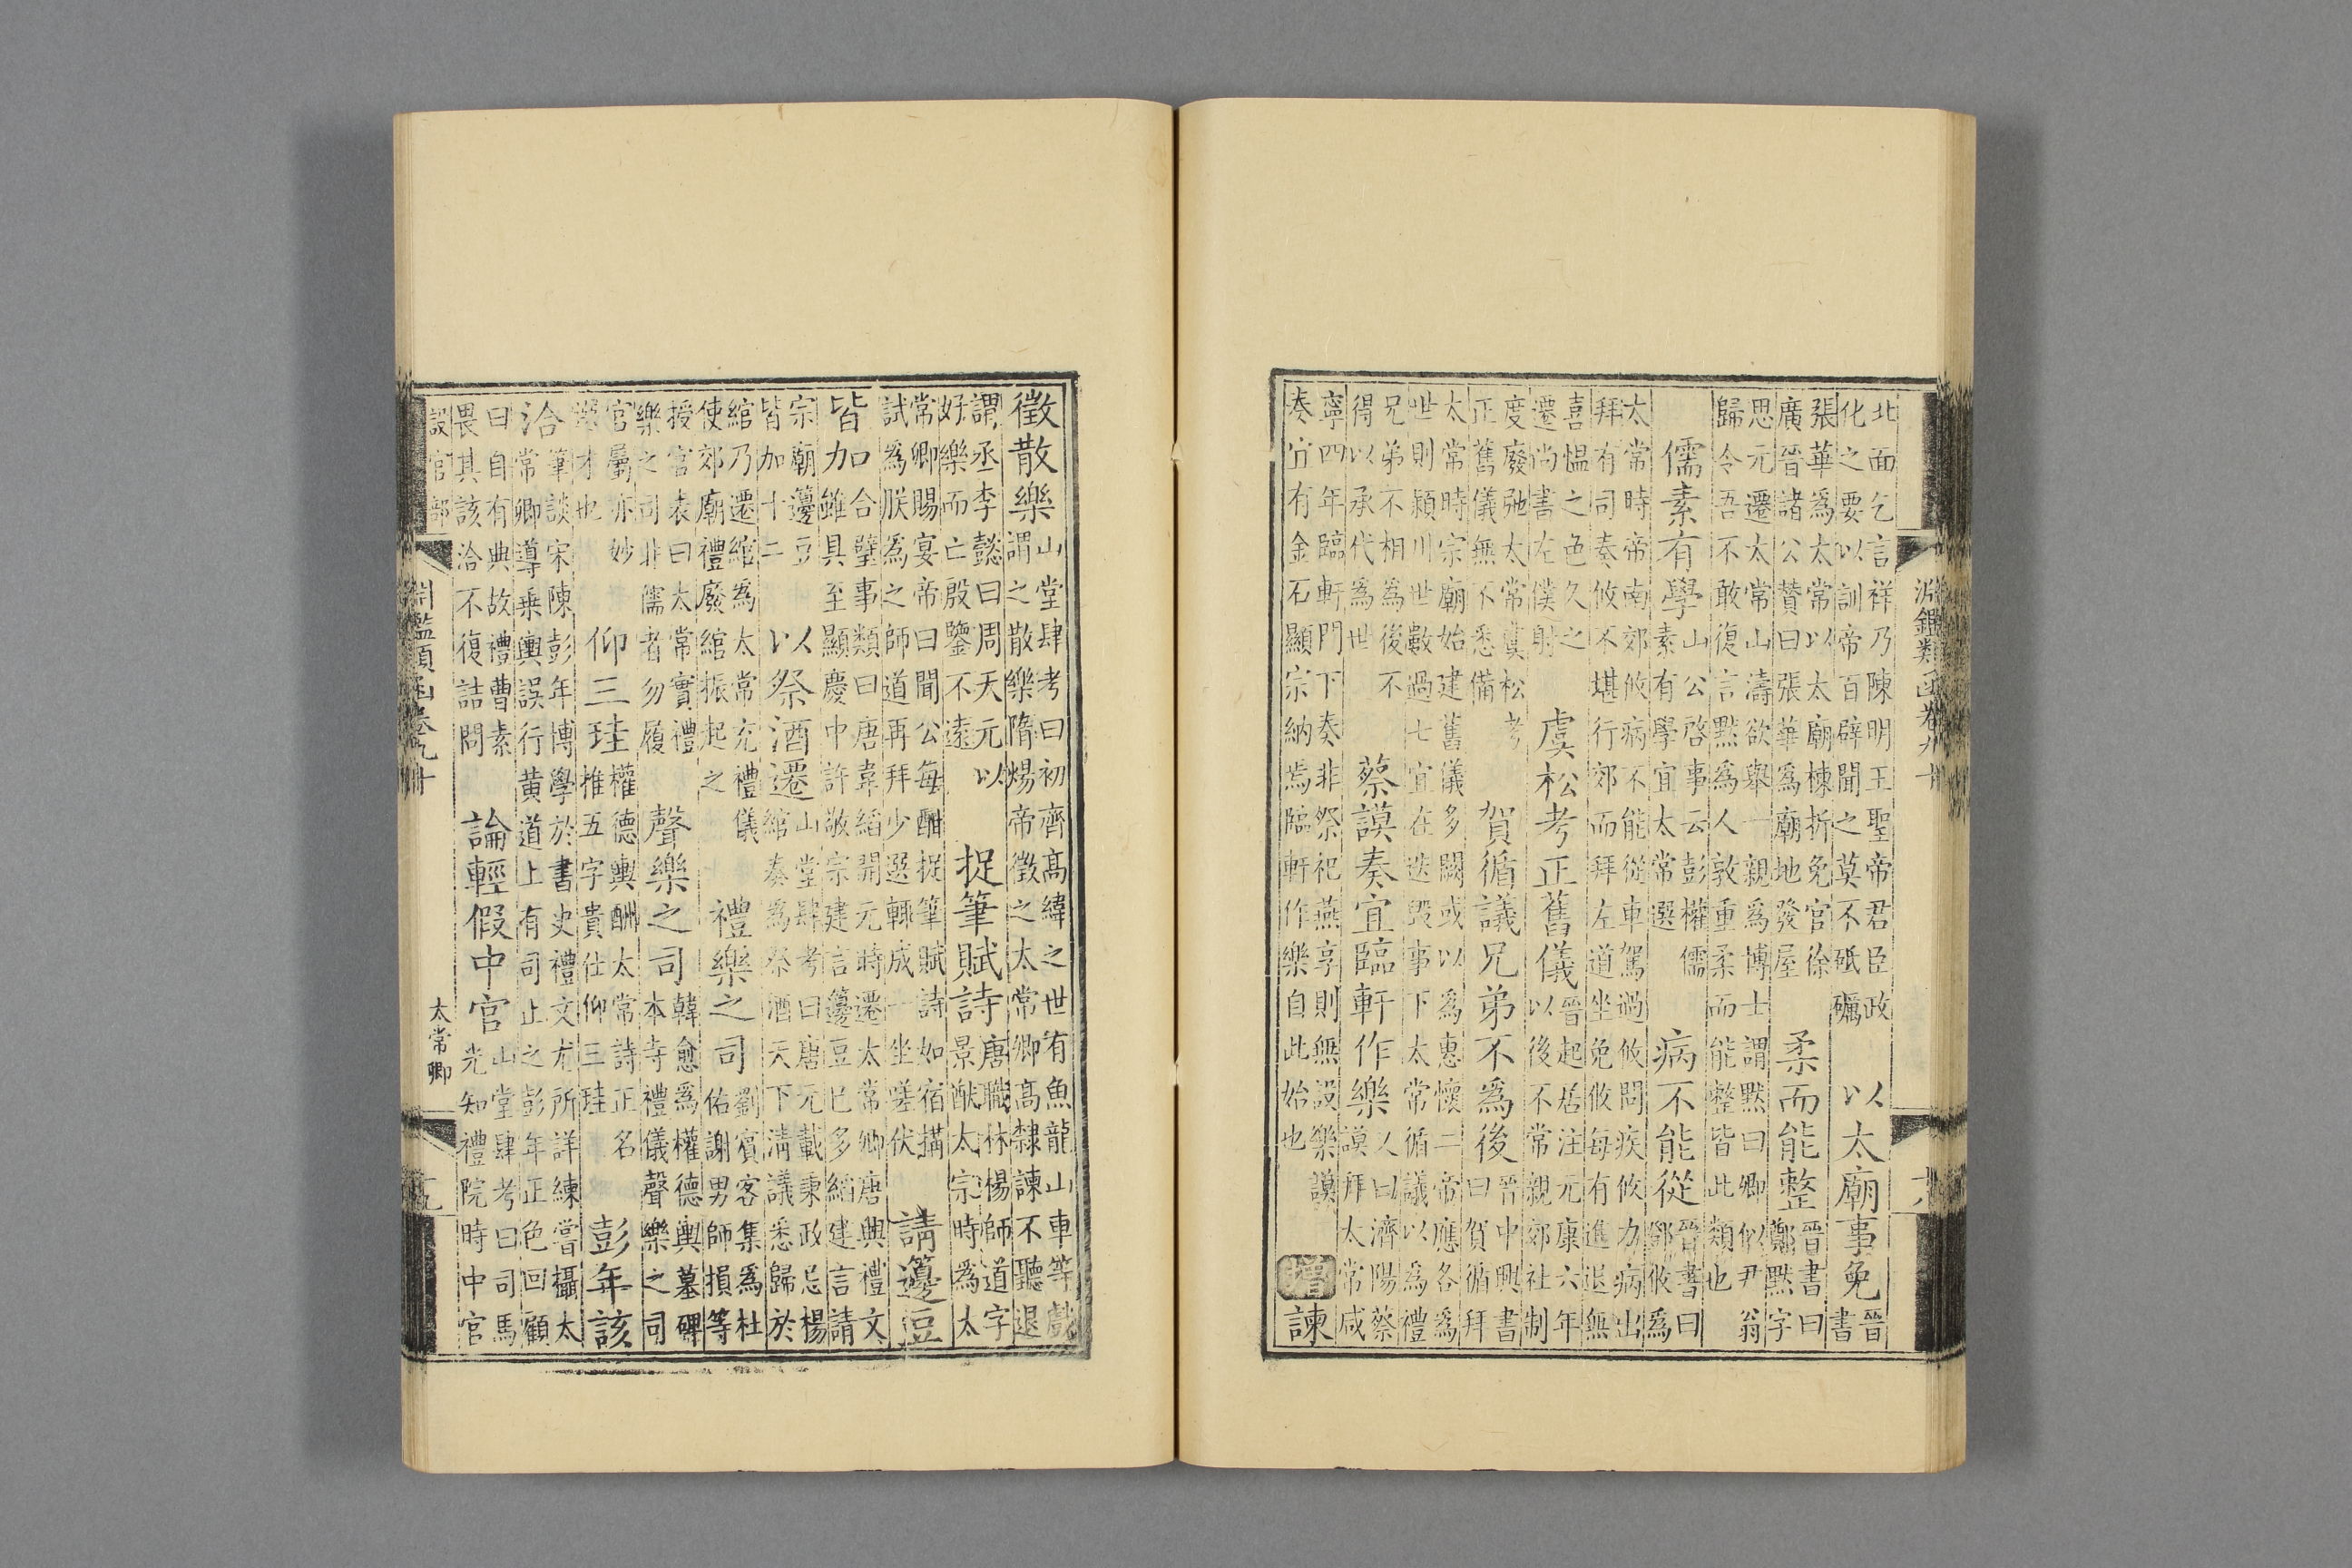 淵鑑類函卷九十
十八
北面乞言祥乃陳明王聖帝君臣政
化之要以訓帝百辟聞之莫不砥礪
以太廟事免
晉
書
張華為太常以太廟棟折免官徐
廣晉諸公贊曰張華為廟地發屋
柔而能整
晉書曰
鄭默字
思元遷太常山濤欲舉一親為博士謂默曰卿似尹翁
歸令吾不敢復言默為人敦重柔而能整皆此類也
儒素有學
山公啓事云彭權儒
素有學宜太常選
病不能從
晉書曰
鄭攸為
太常時帝南郊攸病不能從車駕過攸問疾攸力病出
拜有司奏攸不堪行郊而拜左道坐免攸每有進退無
喜慍之色久之
遷尚書左僕射
虞松考正舊儀
晉起居注元康六年
以後不常親郊社制
度廢弛太常虞松考
正舊儀無不悉備
賀循議兄弟不為後
晉中興書
曰賀循拜
太常時宗廟始建舊儀多闕或以為惠懷二帝應各為
世則潁川世數過七宜在迭毀事下太常循議以為禮
兄弟不相為後不
得以承代為世
蔡謨奏宜臨軒作樂
又曰濟陽蔡
謨拜太常咸
寧四年臨軒門下奏非祭祀燕享則無設樂謨
奏宜有金石顯宗納焉臨軒作樂自此始也
增
諫
徵散樂
山堂肆考曰初齊高緯之世有魚龍山車等戲
謂之散樂隋煬帝徵之太常卿高隸諫不聽退
謂丞李懿曰周天元以
好樂而亡殷鑒不遠
捉筆賦詩
唐職林楊師道字
景猷太宗時為太
常卿賜宴帝曰聞公每酣捉筆賦詩如宿搆
試為朕為之師道再拜少選輒成一坐嗟伏
請籩豆
皆加
合璧事類曰唐韋縚開元時遷太常卿唐興禮文
雖具至顯慶中許敬宗建言籩豆已多縚建言請
宗廟籩豆
皆加十二
以祭酒遷
山堂肆考曰唐元載秉政忌楊
綰奏為祭酒天下清議悉歸於
綰乃遷綰為太常充禮儀
使郊廟禮廢綰振起之
禮樂之司
劉賓客集為杜
佑謝男師損等
授官表曰太常實禮
樂之司非儒者勿履
聲樂之司
韓愈為權德輿墓碑
本寺禮儀聲樂之司
官屬亦妙
選才也
仰三珪
權德輿酬太常詩正名
推五字貴仕仰三珪
彭年該
洽
筆談宋陳彭年博學於書史禮文尤所詳練嘗攝太
常卿導乘輿誤行黃道上有司止之彭年正色回顧
曰自有典故禮曹素
畏其該洽不復詰問
論輕假中官
山堂肆考曰司馬
光知禮院時中官
設官部
淵鑑類函卷九十
太常卿
十九